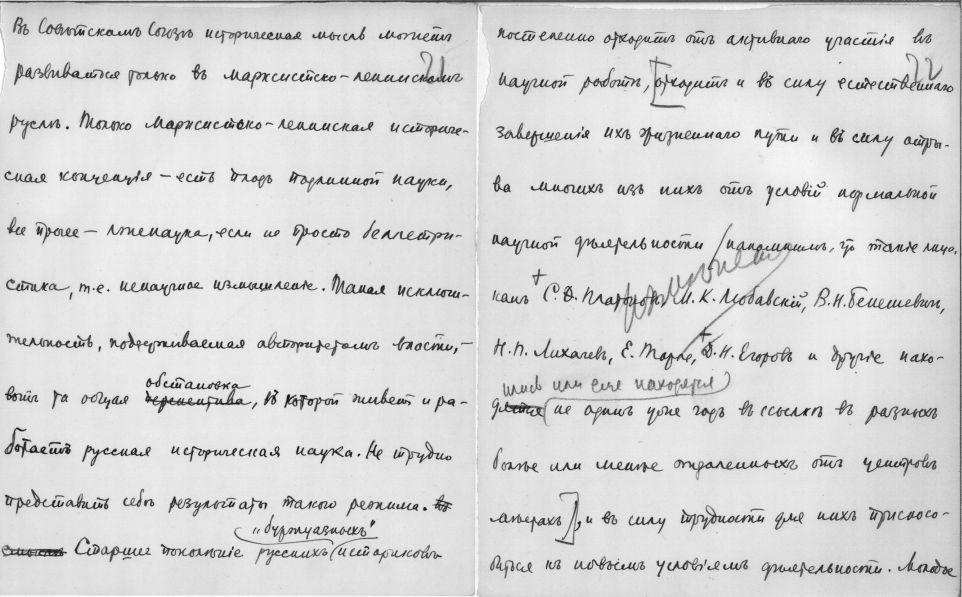 21
Въ Совѣтскомъ Союзѣ историческая мысль можетъ
развиваться только въ марксистско-ленинскомъ
руслѣ. Только марксистско-ленинская историче-
ская концепцiя – есть плодъ подлинной науки,
все прочее – лженаука, если не просто беллетри-
стика, т.е. ненаучное измышленiе. Такая исключи-
тельность, поддерживаемая авторитетомъ власти, –
вотъ та общая
обстановка
перспектива, въ которой живетъ и ра-
ботаетъ русская историческая наука. Не трудно
представить себѣ результаты такого режима. Въ
„буржуазныхъ“
Старшее поколѣнiе русскихъ историковъ
22
постепенно отходитъ отъ активнаго участiя въ
научной работѣ, [отходитъ и въ силу естественнаго
завершенiя ихъ жизненнаго пути и въ силу отры-
ва многихъ изъ нихъ отъ условiй нормальной
научной дѣятельности /напомнимъ, что такiе лица,
какъ + С.Ѳ. Платоновъ, М.К. Любавскiй, В.Н. Бенешевичъ,
Н.П. Лихачевъ, Е. Тарле, + Д.Н. Егоровъ и другiе нахо-
лись или еще находятся)
дятся не одинъ уже годъ въ ссылкѣ въ разныхъ
болѣе или менѣе отдаленныхъ отъ центровъ
мѣстахъ], и въ силу трудности для нихъ приспосо-
биться къ новымъ условiямъ дѣятельности. Молодое